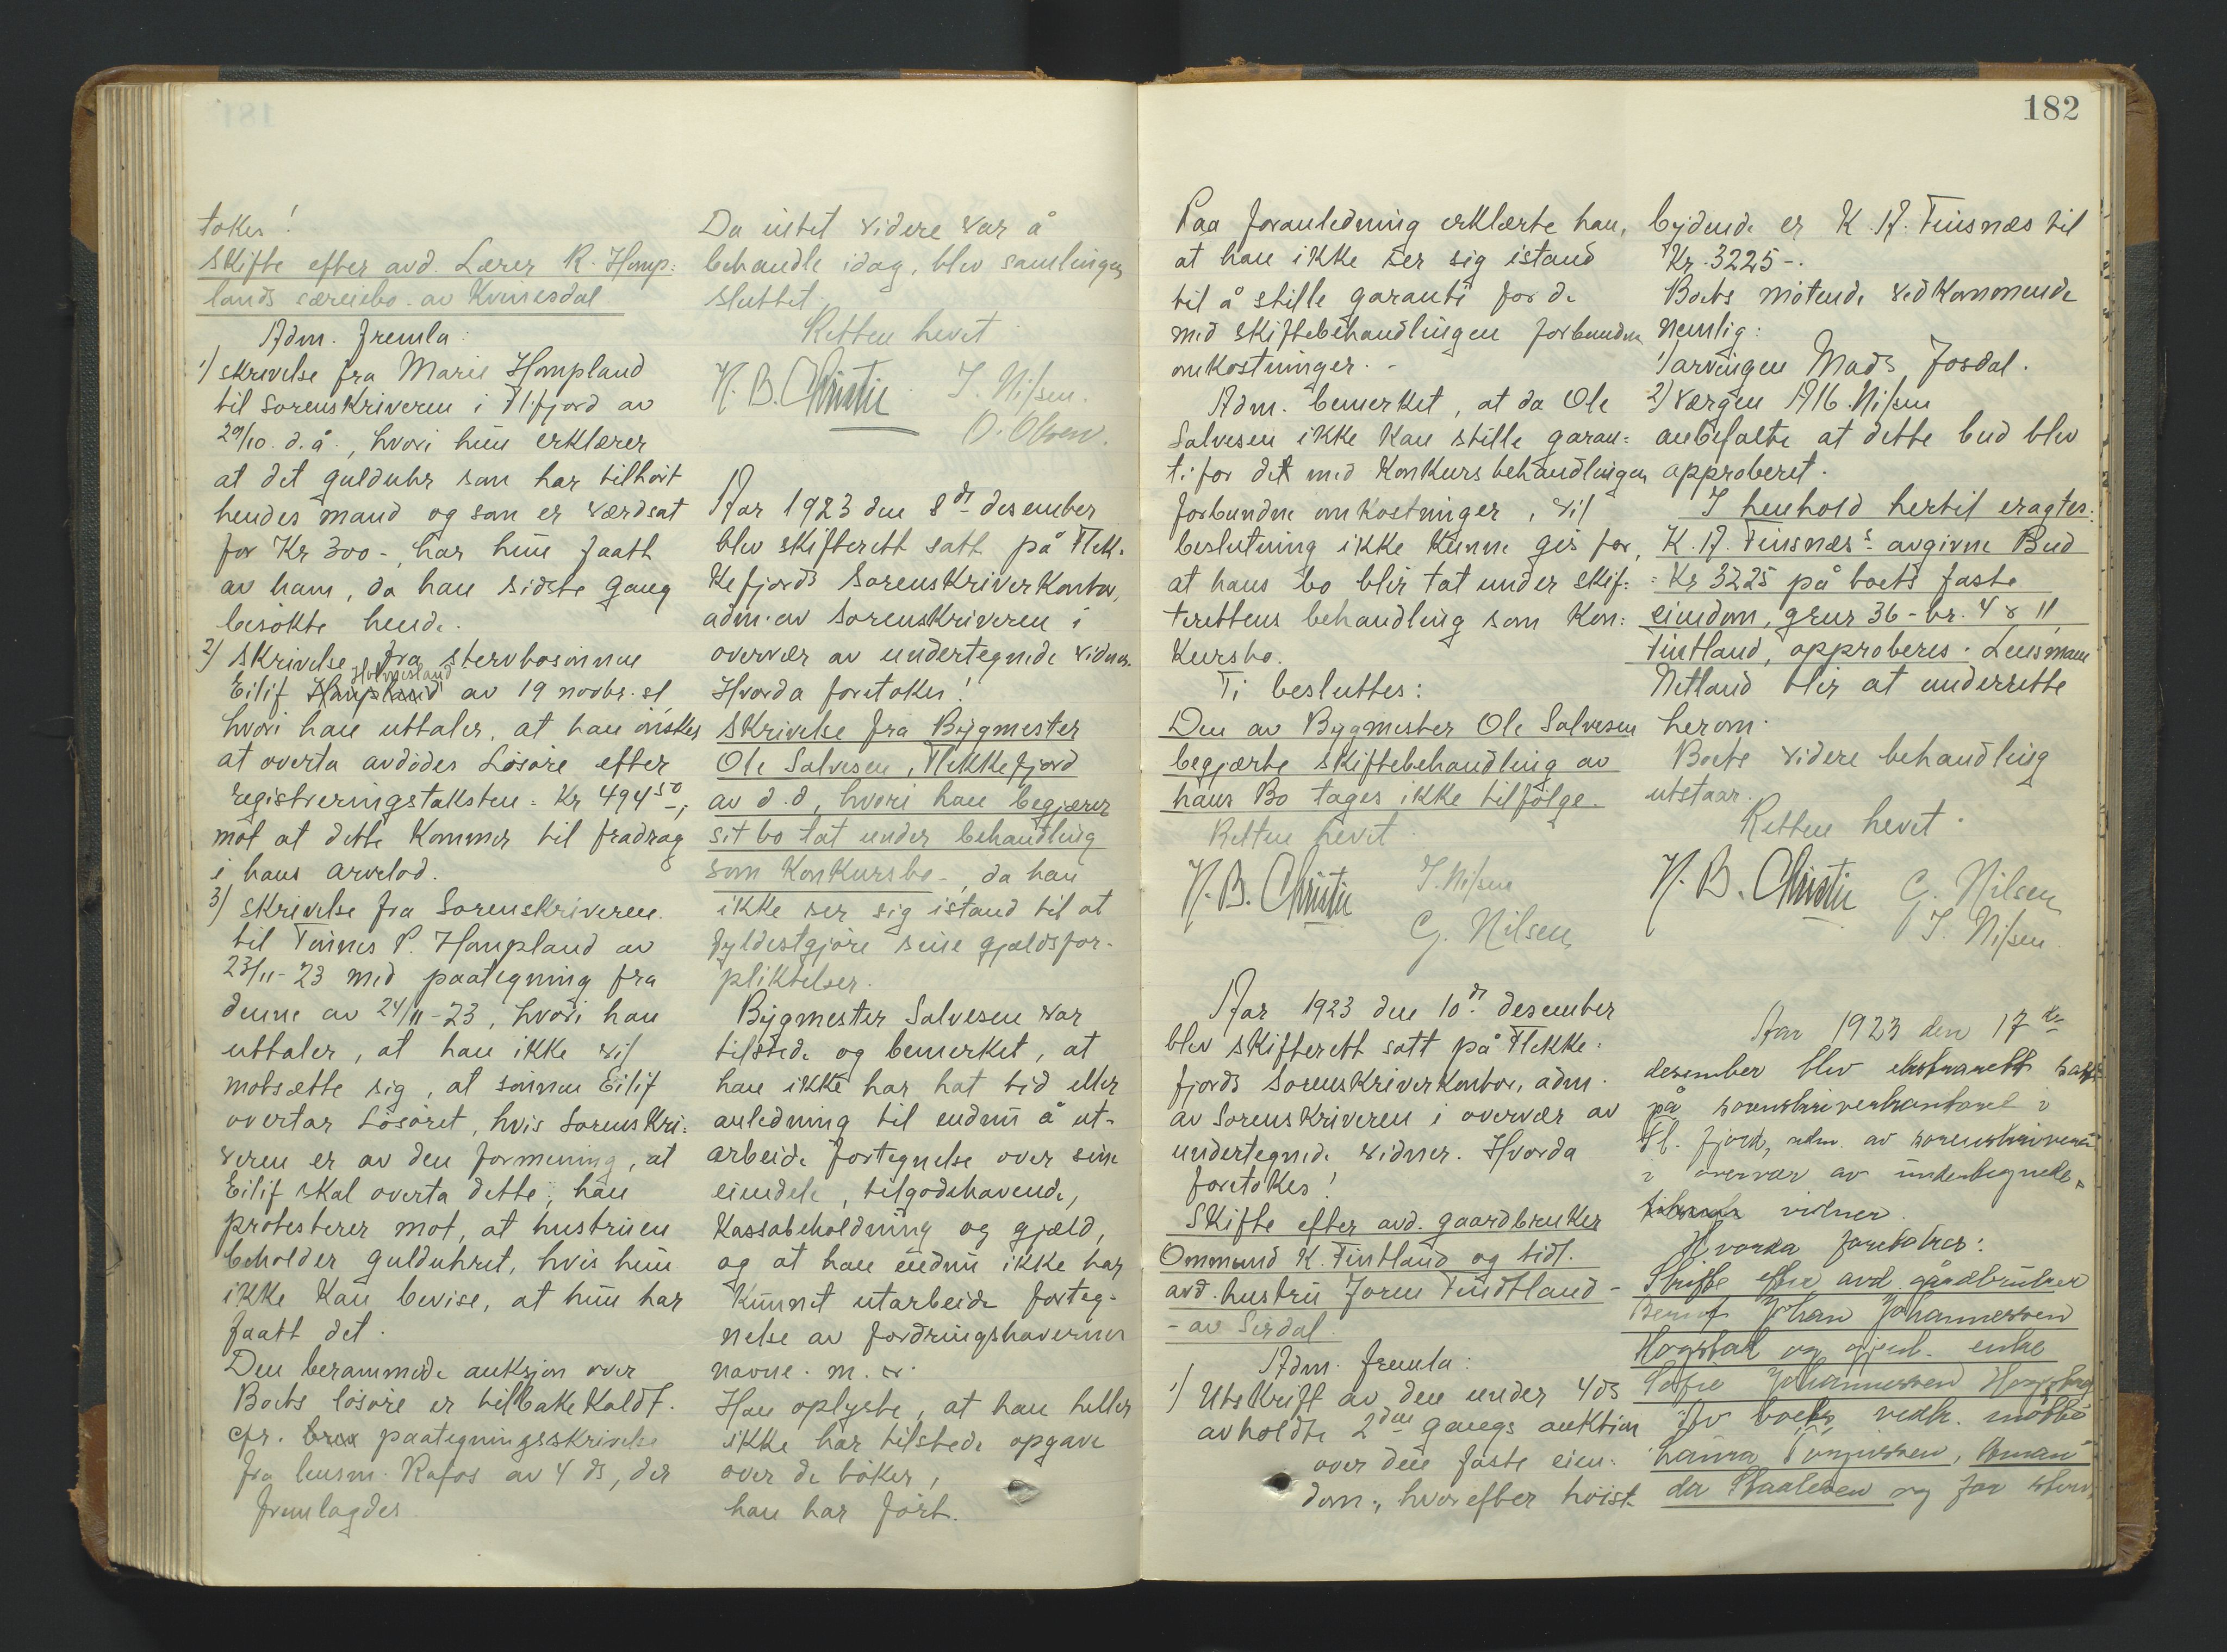 takes!
Skifte efter avd. Lærer R. Homp:
lands særeiebo. av Kvinesdal
Adm. fremla:
1) skrivelse fra Marie Hompland
til Sorenskriveren i Fl.fjord av
29/10. d.å., hvori hun erklærer
at det guldluhr som har tilhört
hendes mand og som er værdsat
for Kr 300-, har hun faatt
av ham, da han sidste gang
besökte hende.
2) Skrivelse fra stervbosönnen
Eilif av 19 novbr. sl
hvori han uttaler, at han önsker
at overta avdödes Lösöre efter
registreringstaksten = Kr 494⁵⁰-,
mot at dette kommer til fradrag
i hans arvelod.
3) skrivelse fra Sorenskriveren
til Tönnes P. Hompland av
23/11-23 med paategning fra
denne av 24/11-23, hvori han
uttaler, at han ikke vil
motsætte sig, at sönnen Eilif
overtar Lösöret, hvis Sorenskri:
veren er av den formening, at
Eilif skal overta dette; han
protesterer mot, at hustruen
beholder gulduhret, hvis hun
ikke kan bevise, at hun har
faatt det.
Den berammede auksjon over
Boets lösöre er tilbakekaldt.
cfr. paategningsskrivelse
fra lensm. Rafos av 4 ds, der
fremlagdes
Da intet videre var å
behandle idag, blev samlingen
sluttet.
Retten hevet
N. B. Christie. T. Nilsen.
O. Olsen.
Aar 1923 den 8de desember
blev skifterett satt på Flek-
kefjords Sorenskriverkontor,
adm. av Sorenskriveren i
overvær av undertegnede vidner.
Hvorda foretokes!
Skrivelse fra Bygmester
Ole Salvesen, Flekkefjord
av d.d, hvori han begjærer
sit bo tat under behandling
som Konkursbo-, da han
ikke ser sig istand til at
fyldestgjöre sine gjældsfor-
pliktelser.
Bygmester Salvesen var
tilstede og bemerket, at
han ikke har hat tid eller
anledning til endnu å ut-
arbeide fortegnelse over sine
eiendele, tilgodehavende,
Kassabeholdning og gjæld,
og at han endnu ikke har
kunnet utarbeide forteg-
nelse av fordringshavernes
navne. m. v.
Han oplyste, at han heller
ikke har tilstede opgave
over de böker,
han har fört.
182
Paa foranledning erklærte han,
at han ikke ser sig istand
til å stille garanti for de
med skiftebehandlingen forbundne
omkostninger. -
Adm. bemerket, at da Ole
Salvesen ikke kan stille garan:
ti for det med Konkursbehandlingen
forbundne omkostninger, vil
beslutning ikke kunne ges for,
at hans bo blir tat under skif:
terettens behandling som Kon:
kursbo.
Ti besluttes:
Den av Bygmester Ole Salvesen
begjærte skiftebehandling av
hans Bo tages ikke tilfölge.
Retten hevet
N. B. Christie T. Nilsen
G. Nilsen
Aar 1923 den 10de desember
blev skifterett satt på Flekke:
fjords Sorenskriverkontor, adm.
av Sorenskriveren i overvær av
undertegnede vidner. Hvorda
foretokes!
Skifte efter avd. gaardbruker
Ommund K. Tintland og tidl.
avd. hustru Joren Tindtland -
- av Sirdal.
Adm. fremla:
1) Utskrift av den under 4 ds
avholdte 2den gangs auktion
over den faste eien:
dom, hvorefter höist-
bydende er K. A. Tinsnæs til
Kr. 3225-.
Boets mötende vedkommende
nemlig:
1) arvingen Mads Josdal.
2) værgen Alb. Nilsen
anbefalte at dette bud blev
approberet.
I henhold hertil eragtes:
K. A. Tinsnæss avgivne Bud
= Kr 3225 på boets faste
eiendom, gnr 36 - br. 4 & 11,
Tintland, approberes. Lensmann
Netland blir at underrette
herom.
Boets videre behandling
utstaar.
Retten hevet.
N. B. Christie G. Nilsen
T. Nilsen
Aar 1923 den 17de
desember blev ekstrarett satt
på sorenskriverkontoret i
Fl. fjord, adm. av sorenskriveren
i overvær av undertegnede
vidner.
Hvorda foretokes:
Skifte efter avd. gårdbruker
Johan Johannessen
Hogstad og gjenl. enke
Sofie Johannessen
For boets vedk. møtte
Tönnessen, Aman
da Staalesen og for